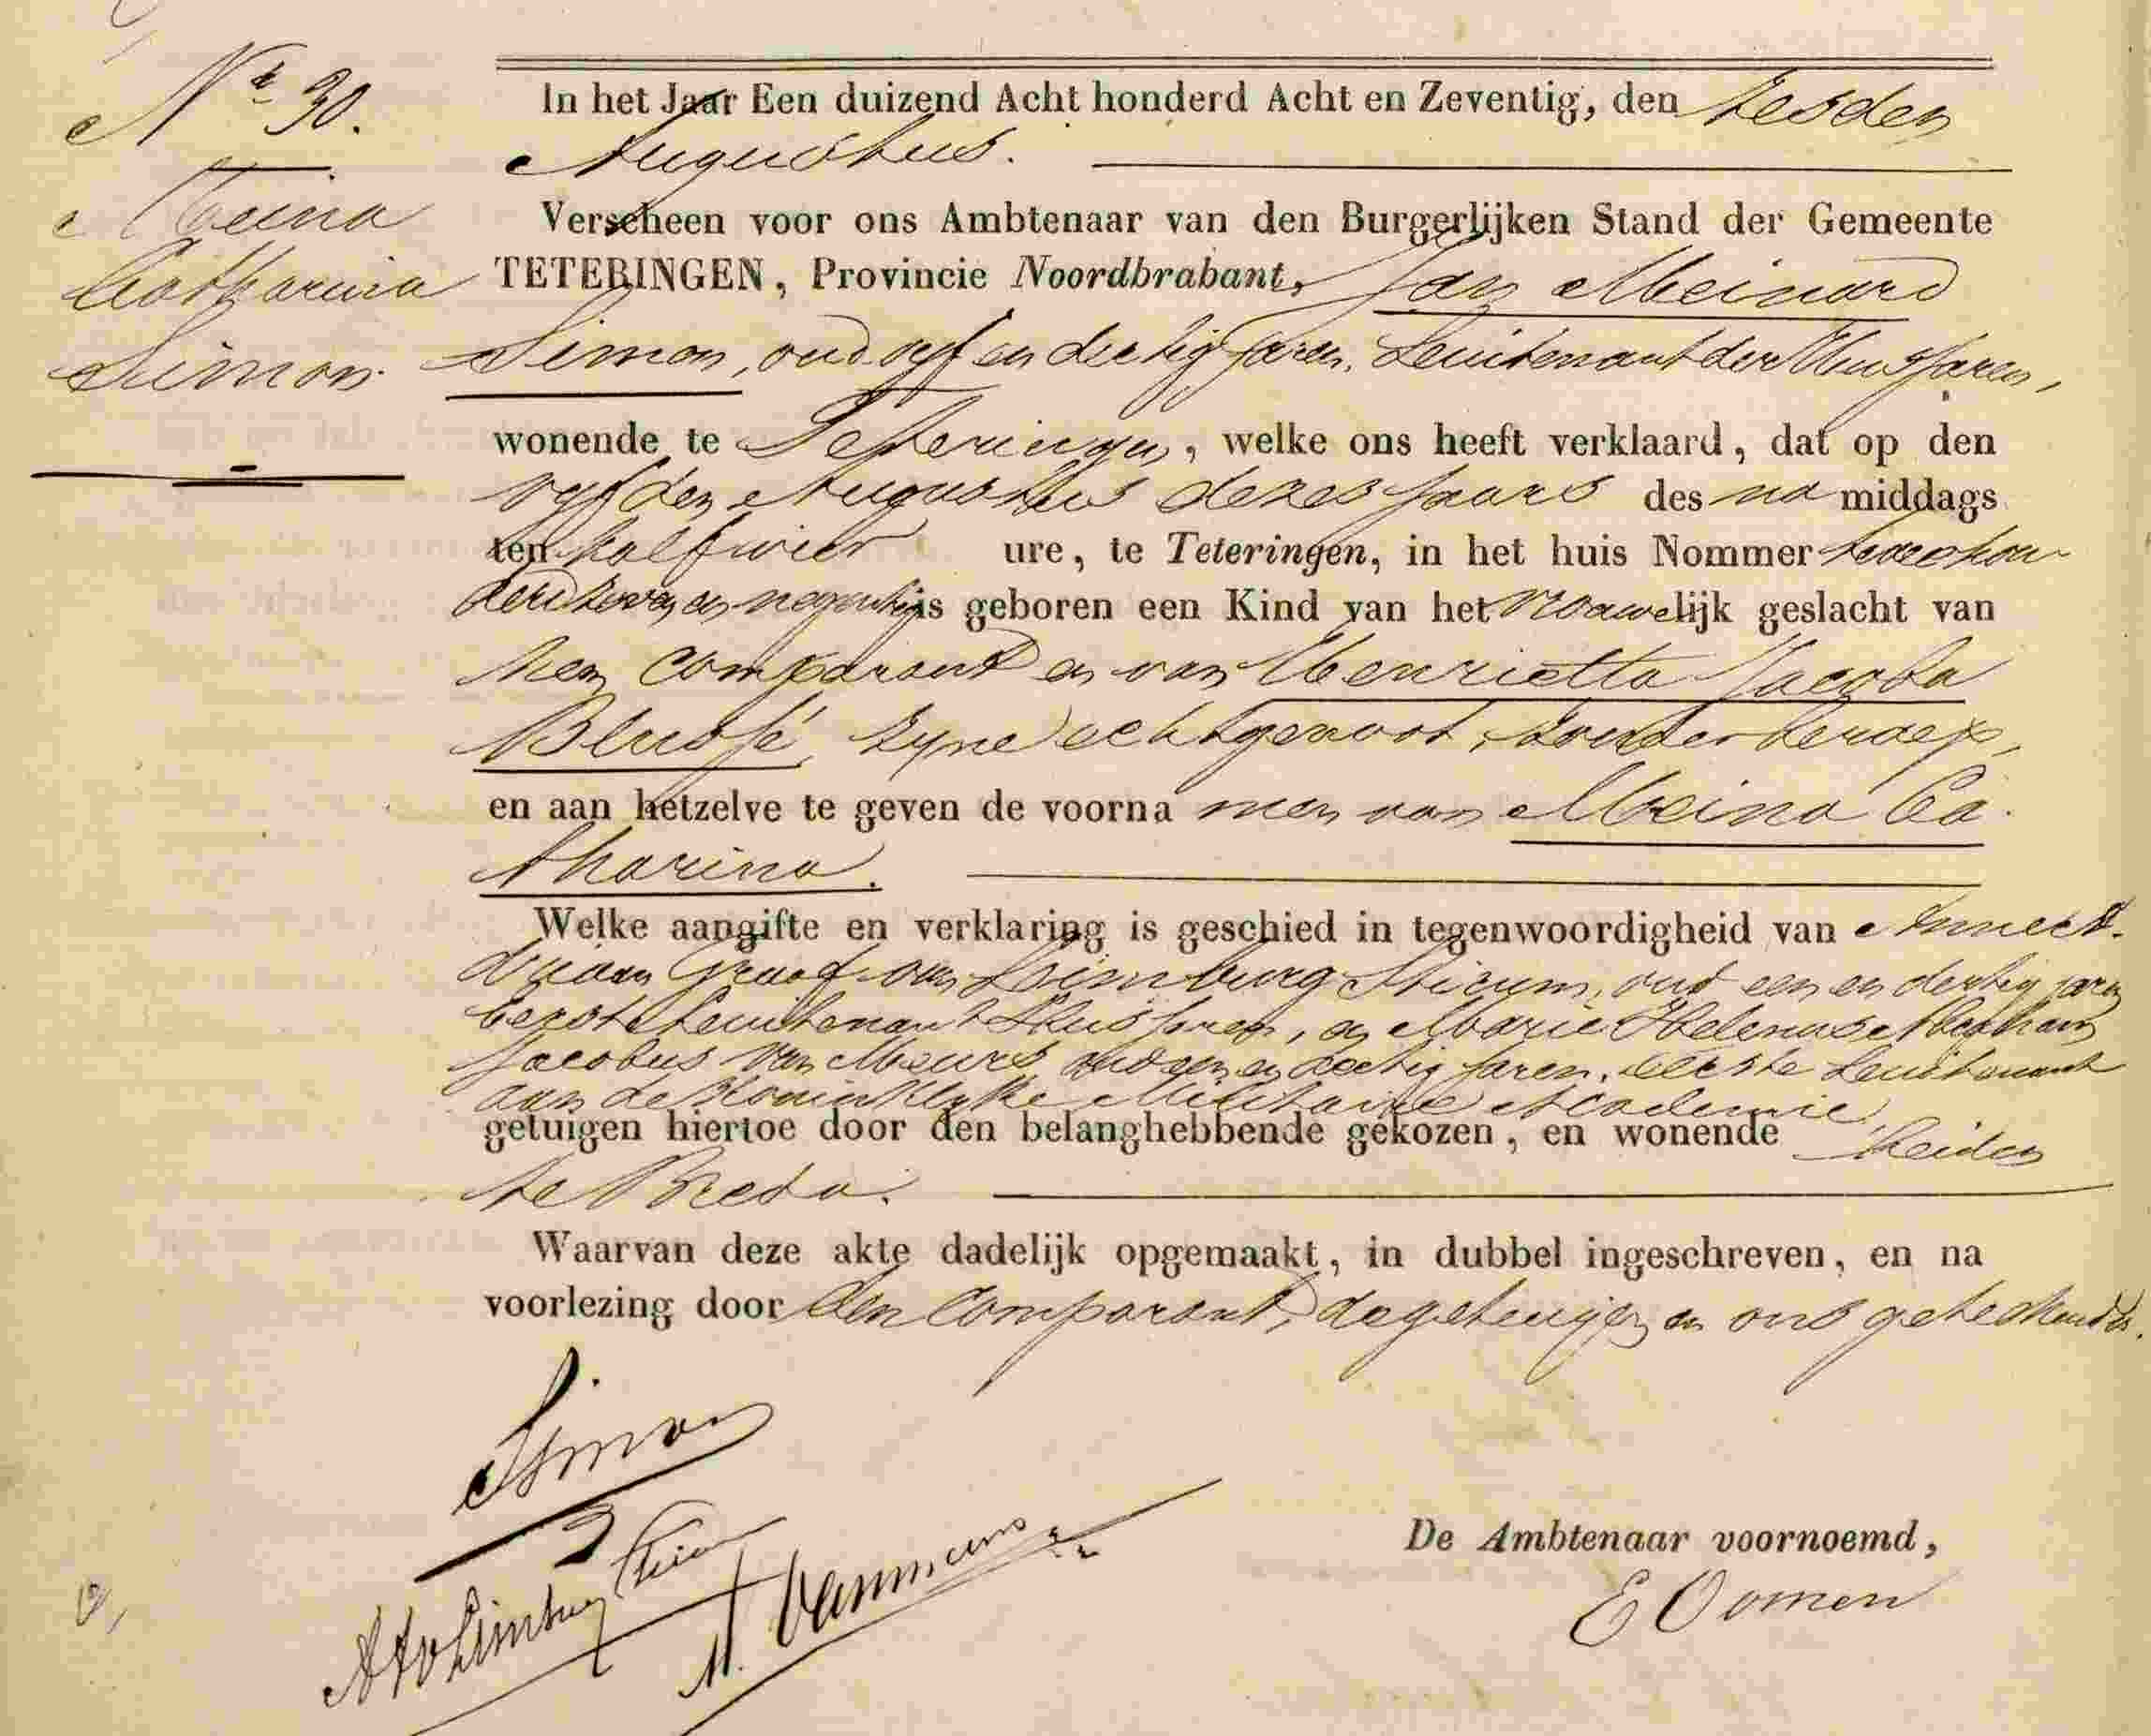 No 30.
Meina
Catharina
Simon.
In het Jaar Een duizend Acht honderd Acht en Zeventig, den zesden
Augustus.
Verscheen voor ons Ambtenaar van den Burgerlijken Stand der Gemeente
TETERINGEN, Provincie Noordbrabant, Jan Meinard
Simon, oud vyf en dertig jaren, Luitenant der Husjaren,
wonende te Teteringen, welke ons heeft verklaard, dat op den
vyfden Augustus dezes jaars des na middags
ten half vier ure, te Teteringen, in het huis Nommer twee hon
derd zeven en negentig is geboren een Kind van het vrouwelijk geslacht van
hem comparant en van Henrietta Jacoba
Blussé, zyne echtgenoot, zonder beroep,
en aan hetzelve te geven de voorna men van Meina Ca
tharina.
Welke aangifte en verklaring is geschied in tegenwoordigheid van
Graaf van Limburg Stirum, oud een en dertig jaren
Eerste Luitenant Husjaren, en Marie Helenus Abraham
Jacobus van Meurs, oud een en dertig jaren, eerste Luitenant
aan de Koninklyke Militaire Academie,
getuigen hiertoe door den belanghebbende gekozen, en wonende beiden
te Breda.
Waarvan deze akte dadelijk opgemaakt, in dubbel ingeschreven, en na
voorlezing door den Comparant, de getuigen en ons geteekend is.
Simon
Limburg Stirum
van Meurs
De Ambtenaar voornoemd,
E Oomen